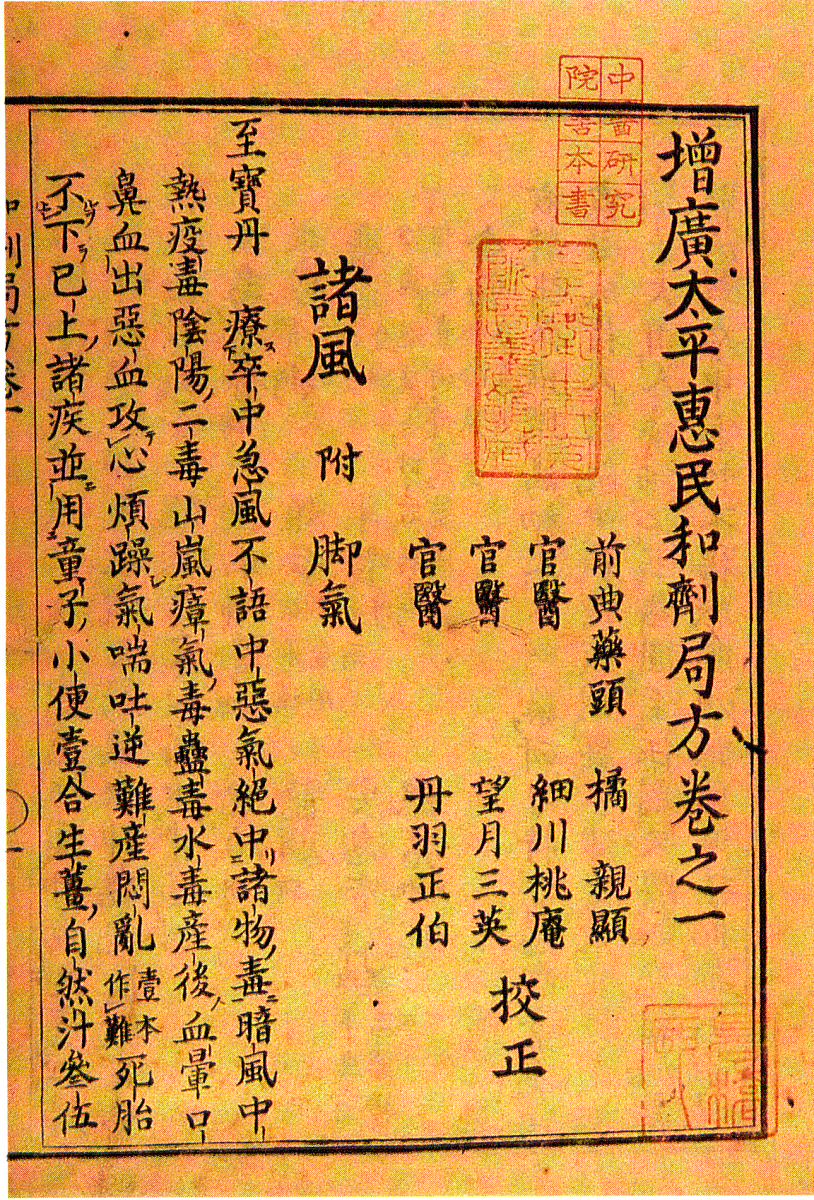 增廣太平惠民和劑局方卷之一
前典藥頭　橘　親顯
官醫　細川桃庵
官醫　望月三英
官醫　丹羽正伯
挍正
諸風　附　脚氣
至寶丹　療卒中急風不語中惡氣絕中諸物毒暗風中
熱疫毒陰陽二毒山嵐瘴氣毒蠱毒水毒產後血暈口
鼻血出惡血攻心煩躁氣喘吐逆難產悶亂壹本作難死胎
不下已上諸疾並用童子小便壹合生薑自然汁叄伍
中醫研究
院善本書